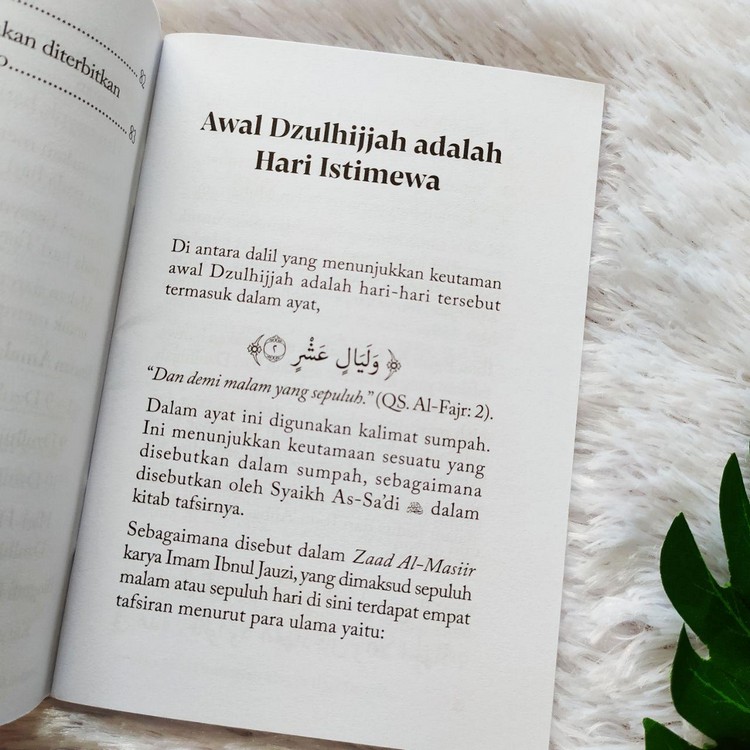 kan diterbitkan
................. 82
................. 83
Awal Dzulhijjah adalah
Hari Istimewa
Di antara dalil yang menunjukkan keutaman
awal Dzulhijjah adalah hari-hari tersebut
termasuk dalam ayat,
﴿ وَلَيَالٍ عَشْرٍ ٢ ﴾
“Dan demi malam yang sepuluh.” (QS. Al-Fajr: 2).
Dalam ayat ini digunakan kalimat sumpah.
Ini menunjukkan keutamaan sesuatu yang
disebutkan dalam sumpah, sebagaimana
disebutkan oleh Syaikh As-Sa’di dalam
kitab tafsirnya.
Sebagaimana disebut dalam Zaad Al-Masiir
karya Imam Ibnul Jauzi, yang dimaksud sepuluh
malam atau sepuluh hari di sini terdapat empat
tafsiran menurut para ulama yaitu: